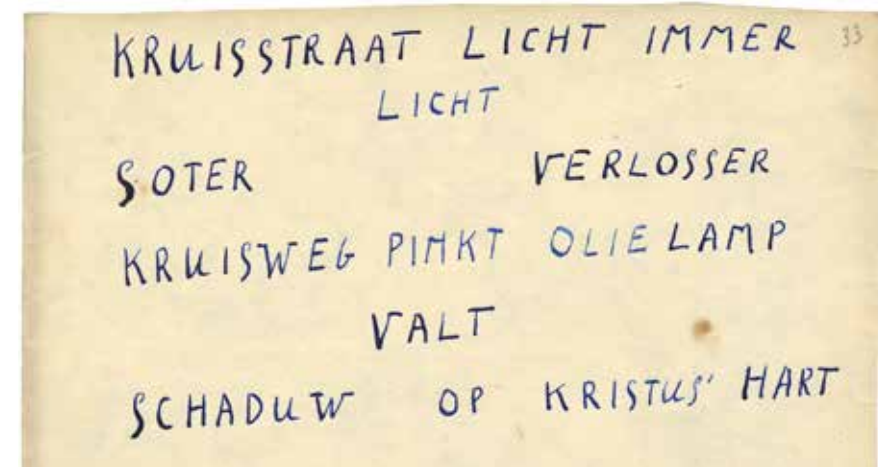 KRUISSTRAAT LICHT IMMER 33
LICHT
SOTER VERLOSSER
KRUISWEG PINKT OLIELAMP
VALT
SCHADUW OP KRISTUS' HART